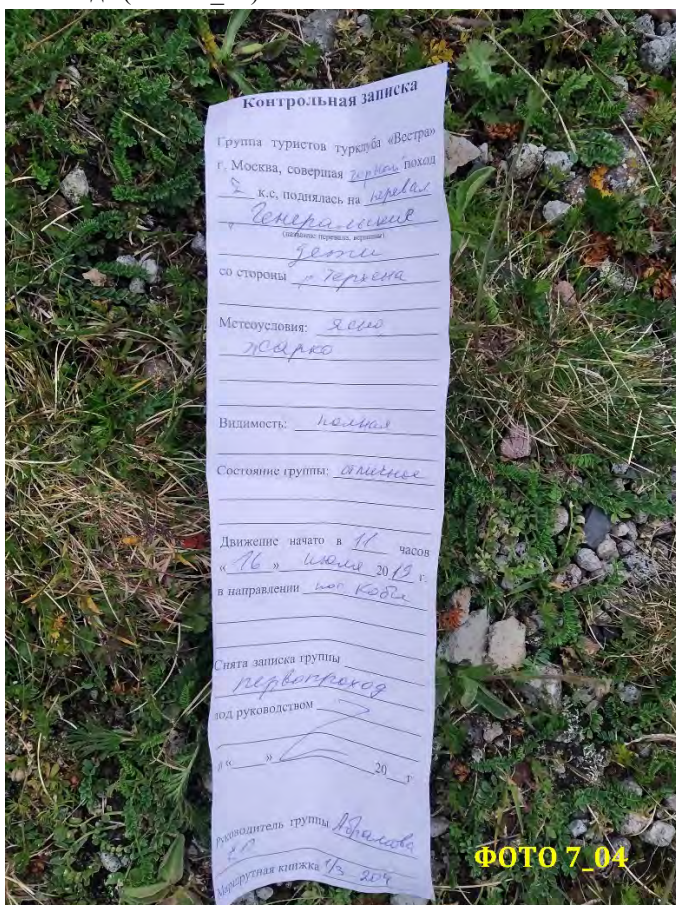 Контрольная записка
Группа туристов турклуба «Вестра»
г. Москва, совершая горный поход
к.с, поднялась на перевал
" Генеральские
(название перевала, вершины)
дети
со стороны р. Терхена
Метеоусловия: ясно,
жарко
Видимость: полная
Состояние группы: отличное
Движение начато в 11 часов
« 16 » июля 2019 г.
в направлении пос. Коби
Снята записка группы
первопроход
под руководством
« » 20 г
Руководитель группы Абрамова
Маршрутная книжка 1/3 204
ФОТО 7_04